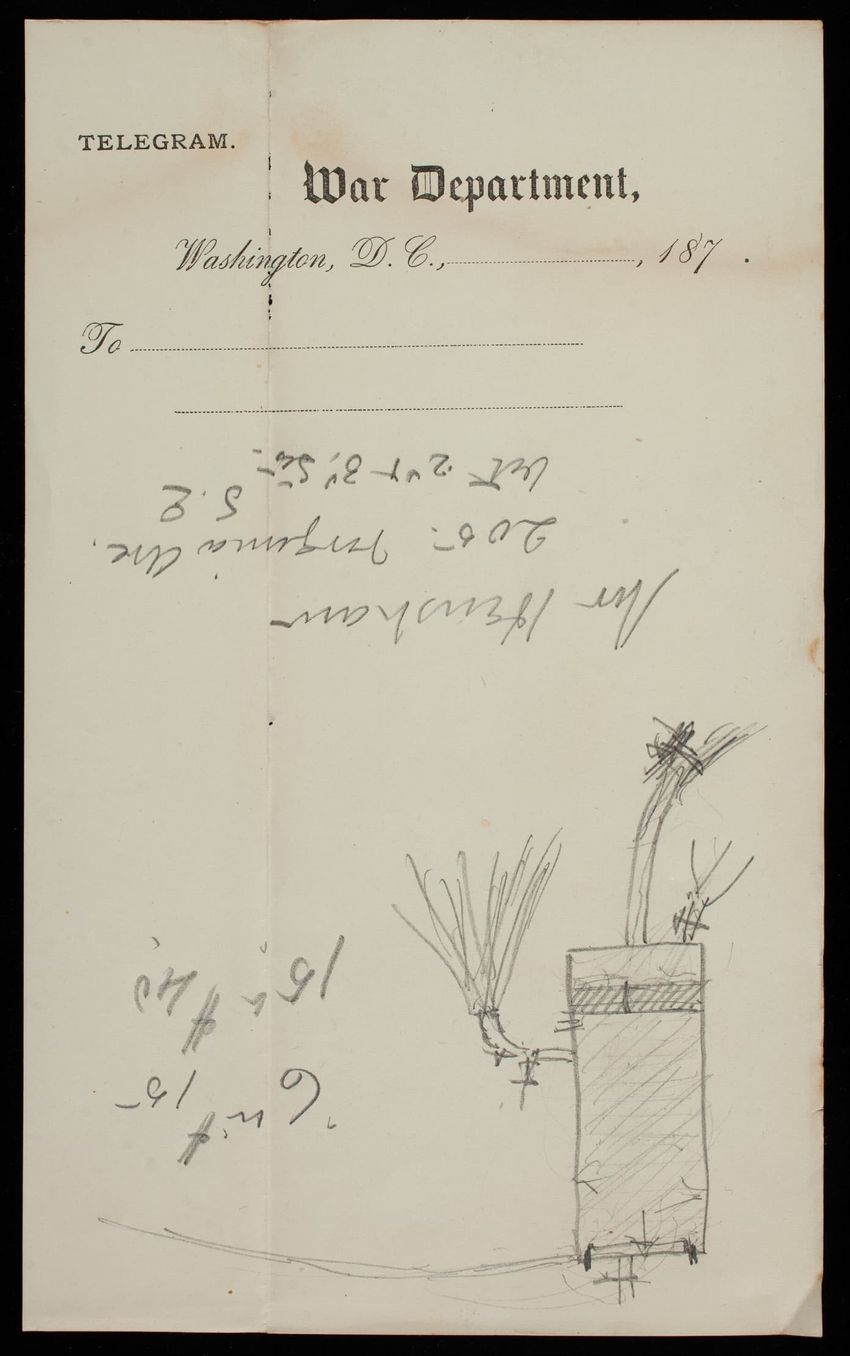 TELEGRAM.
War Department,
Washington, D. C., , 187 .
To
Mr Henshaw
205. Virginia Ave.
S. E
bet 2d & 3d Sts.
6 in # 15
15 in # 40